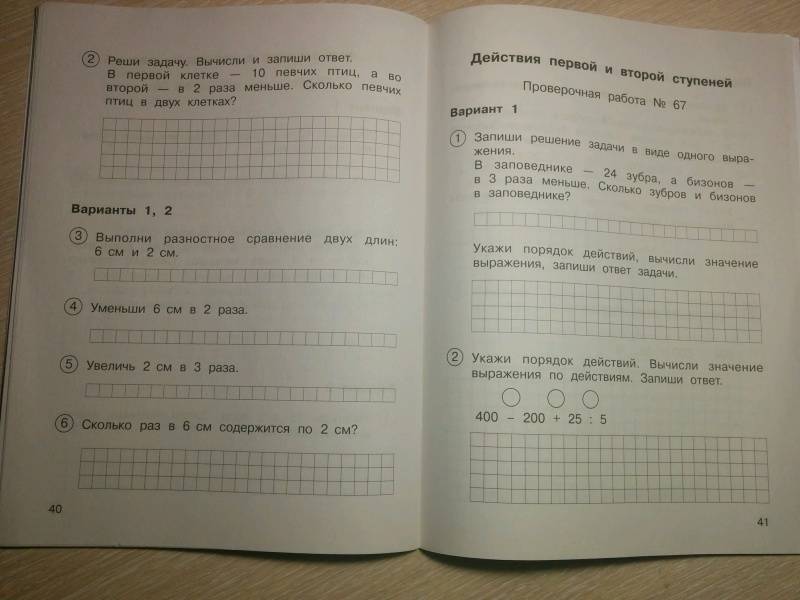 2 Реши задачу. Вычисли и запиши ответ.
В первой клетке — 10 певчих птиц, а во
второй — в 2 раза меньше. Сколько певчих
птиц в двух клетках?
Варианты 1, 2
3 Выполни разностное сравнение двух длин:
6 см и 2 см.
4 Уменьши 6 см в 2 раза.
5 Увеличь 2 см в 3 раза.
6 Сколько раз в 6 см содержится по 2 см?
40
Действия первой и второй ступеней
Проверочная работа № 67
Вариант 1
1 Запиши решение задачи в виде одного выра-
жения.
В заповеднике — 24 зубра, а бизонов —
в 3 раза меньше. Сколько зубров и бизонов
в заповеднике?
Укажи порядок действий, вычисли значение
выражения, запиши ответ задачи.
2 Укажи порядок действий. Вычисли значение
выражения по действиям. Запиши ответ.
400 – 200 + 25 : 5
41